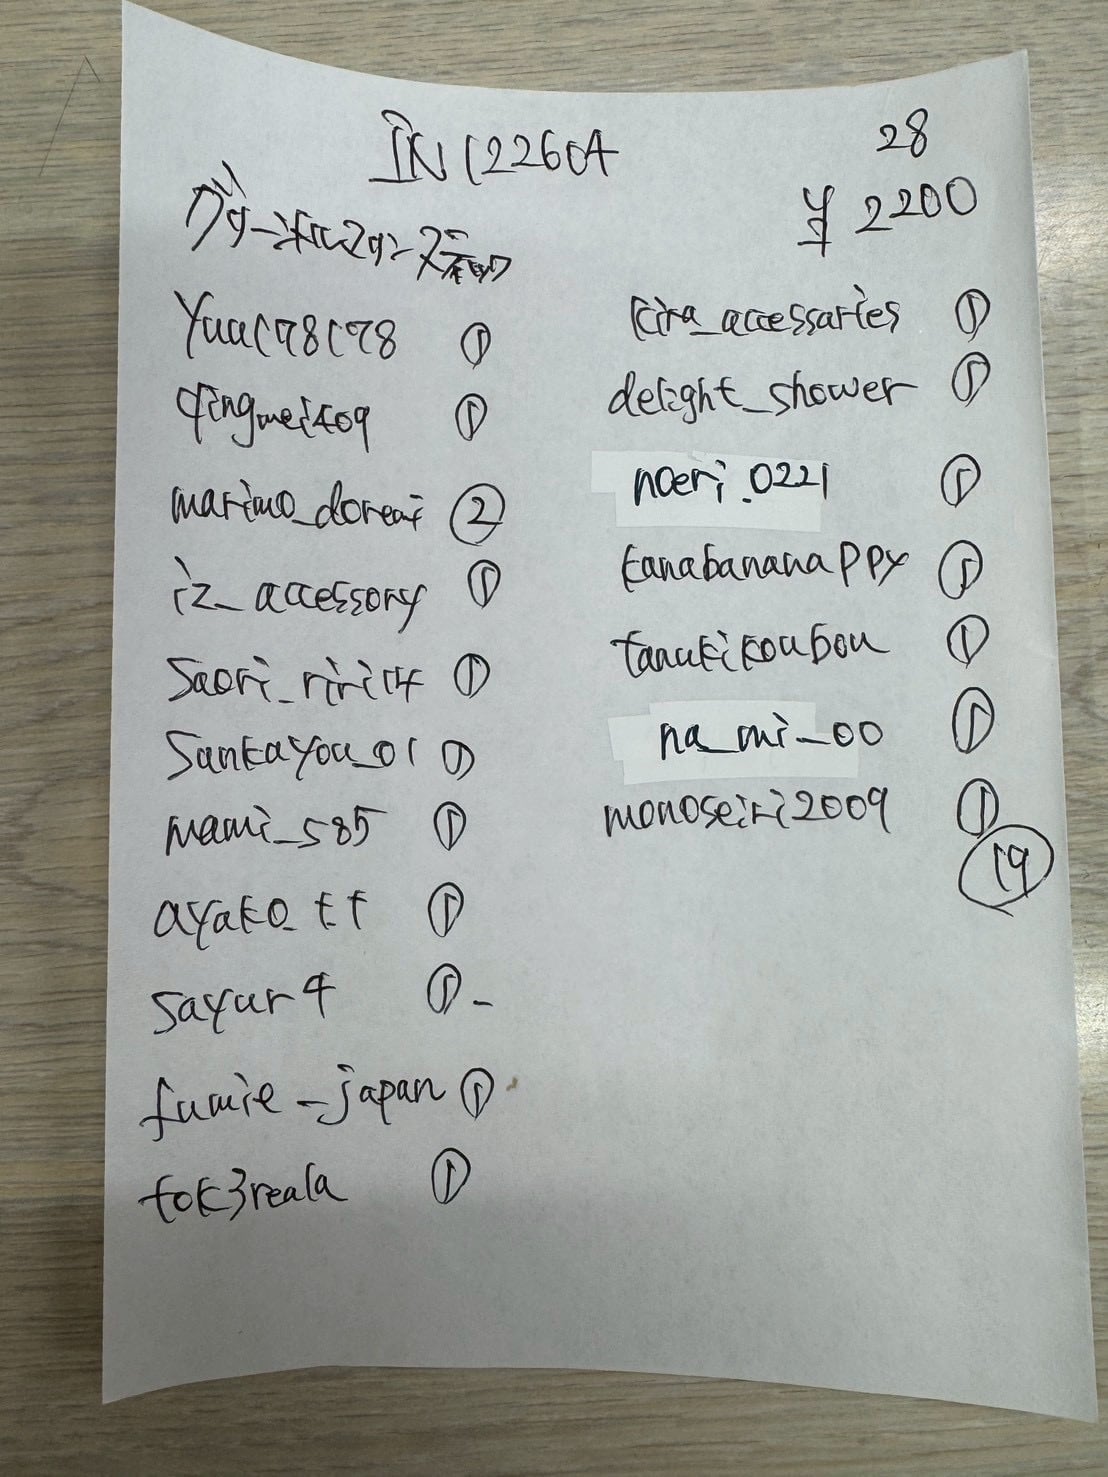 IN12260A
28
¥2200
yuu178178 ①
qingmei409 ①
marimo_doreai ②
iz_accessory ①
saori_riri14 ①
sankayou_01 ①
mami_585 ①
ayako_tt ①
sayur4 ①-
fumie_japan ①
tok3reala ①
kira_accessaries ①
delight_shower ①
noeri_0221 ①
kanabananappy ①
tanukikoubou ①
na_mi_00 ①
monoseiri2009 ①
⑲